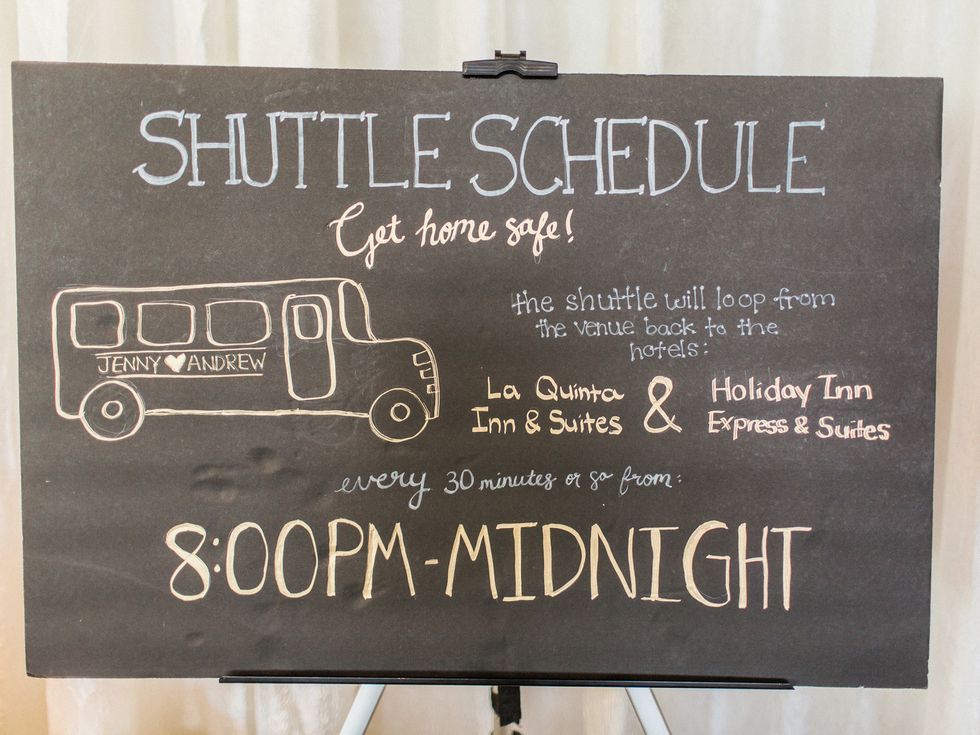 SHUTTLE SCHEDULE
Get home safe!
JENNY ♥ ANDREW
the shuttle will loop from
the venue back to the
hotels:
La Quinta
Inn & Suites
&
Holiday Inn
Express & Suites
every 30 minutes or so from:
8:00PM-MIDNIGHT